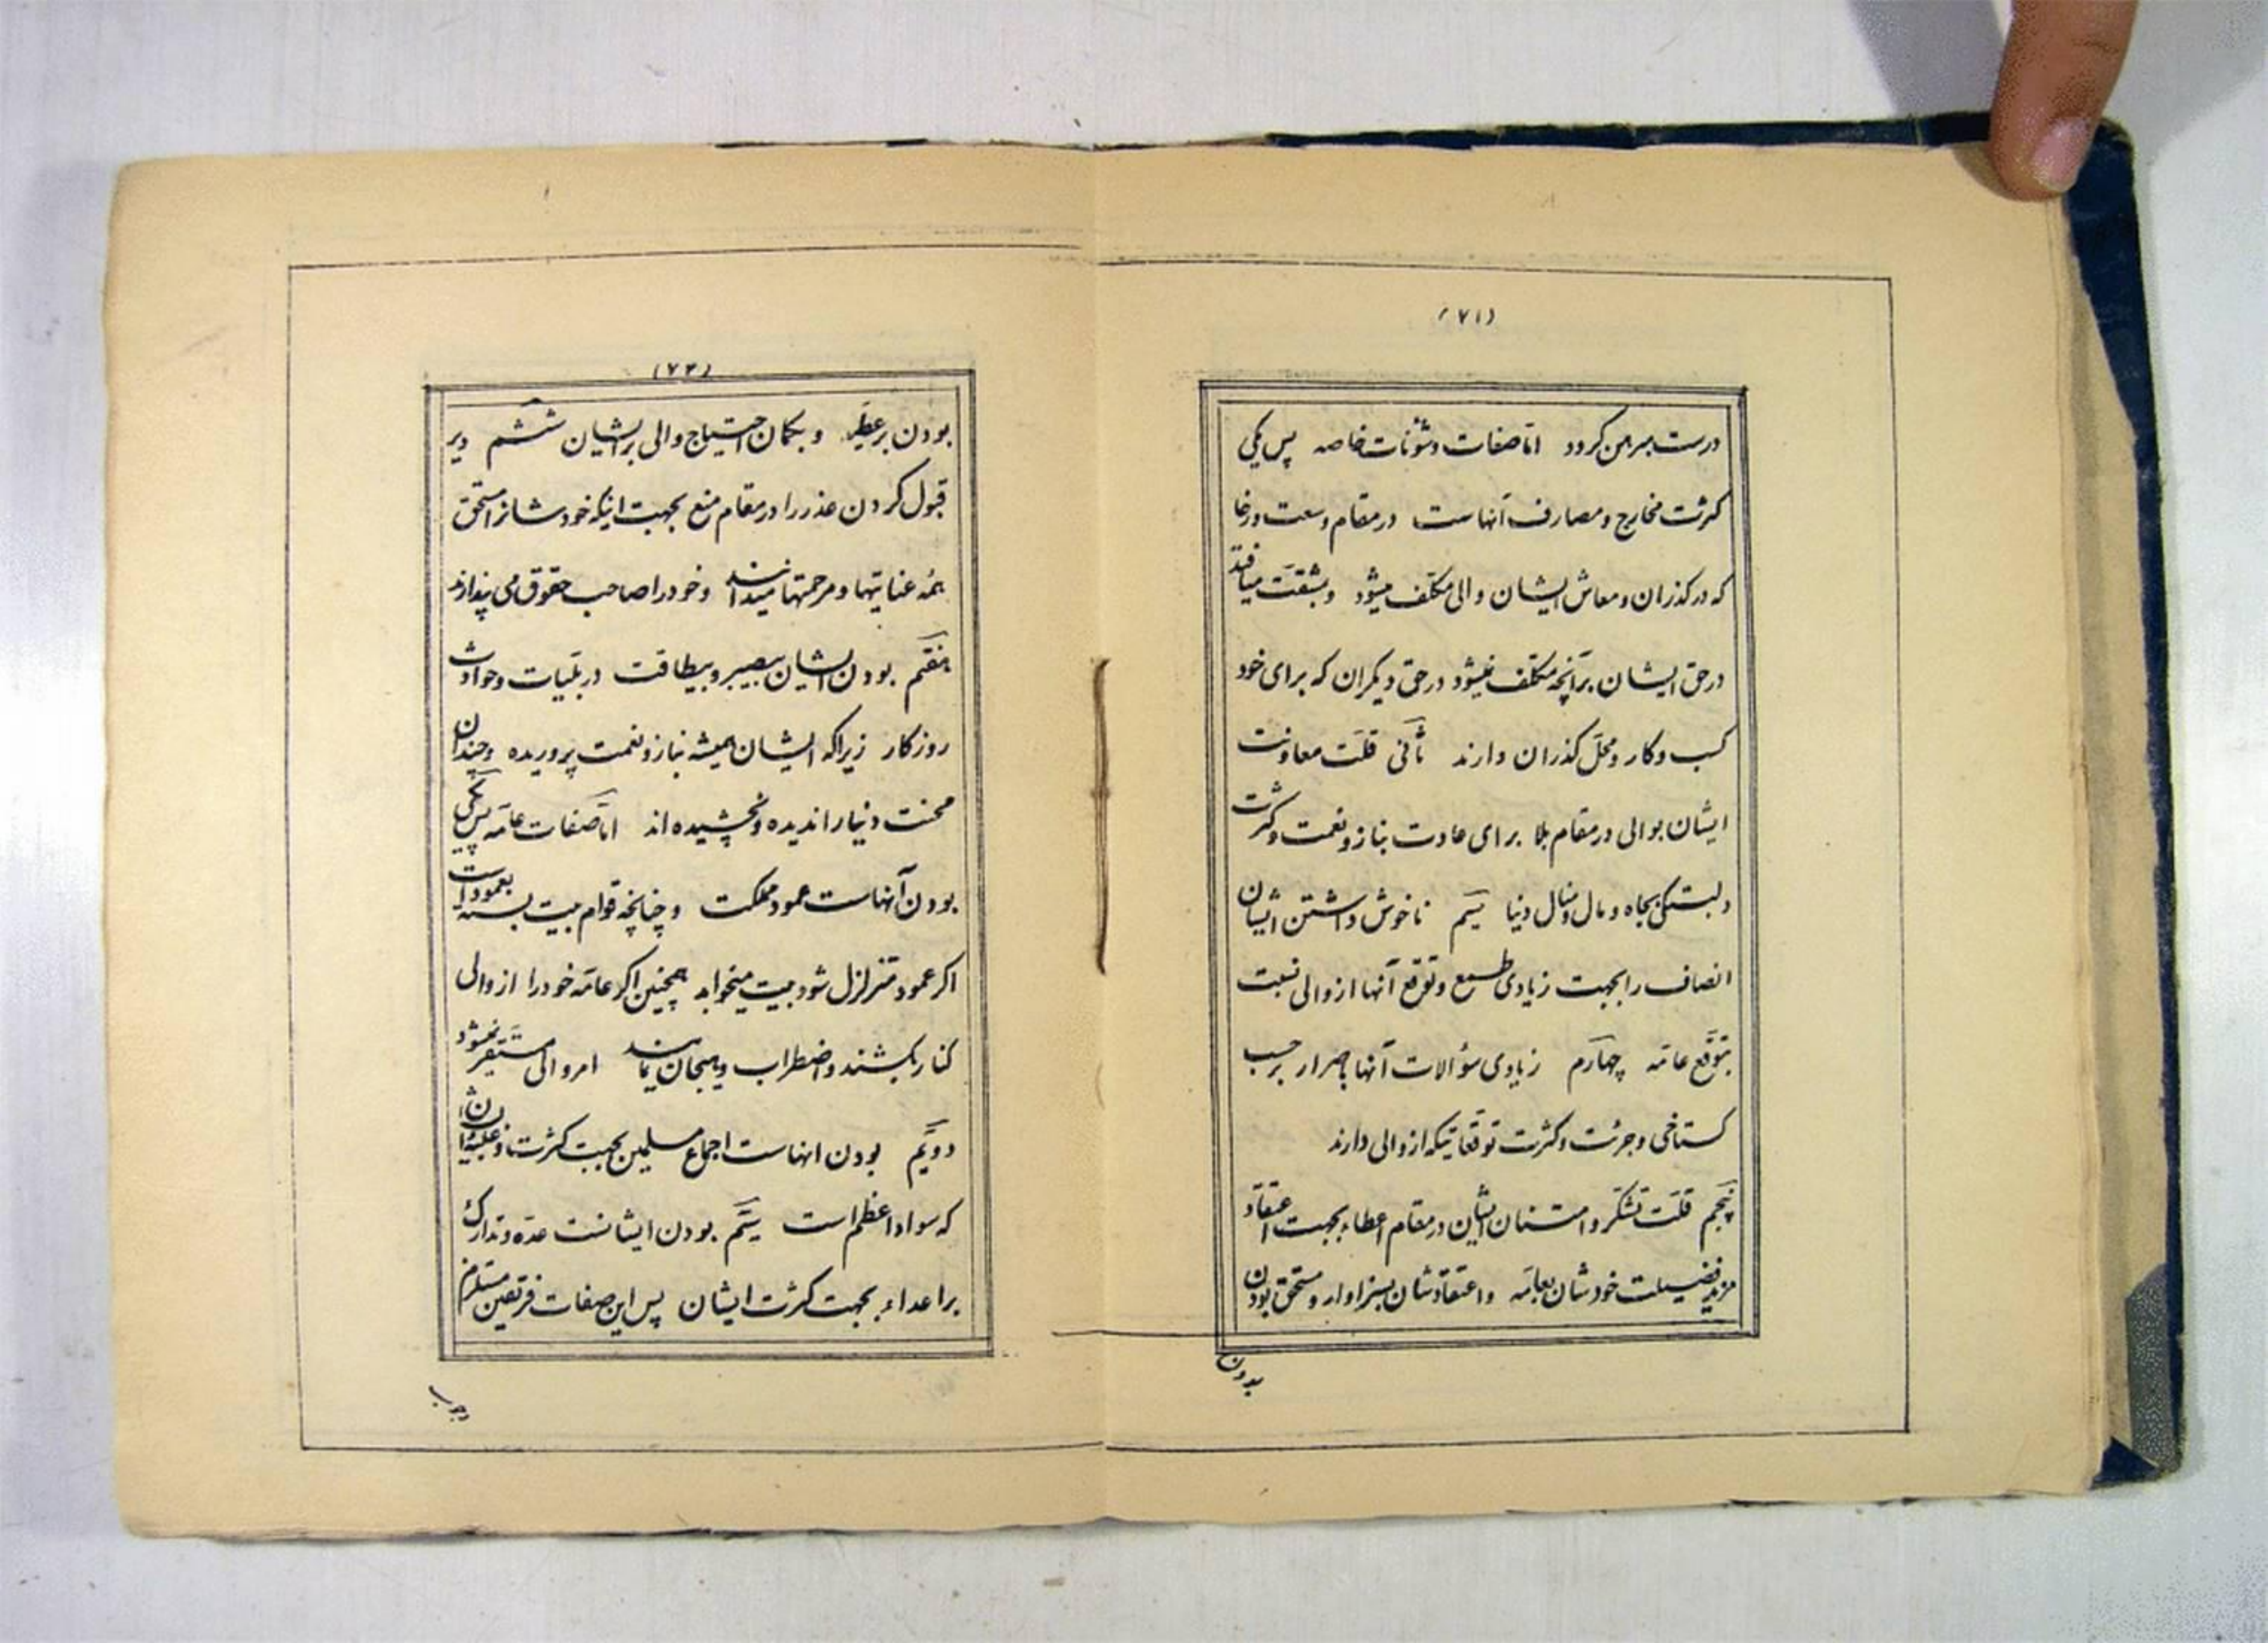 (۷۱)
درست مبرهن کردد امّا صفات و شؤنات خاصه پس یکی
کثرت مخارج و مصارف آنهاست در مقام وسعت و رخا
که در کذران و معاش ایشان والی مکلّف میشود و بمشقّت میافتد
در حق ایشان برآنچه مکلّف نمیشود در حق دیکران که برای خود
کسب و کار و محلّ کذران دارند ثانی قلّت معاونت
ایشان بوالی در مقام بلا برای عادت بناز و نعمت و کثرت
دلبستکی بجاه و مال و منال دنیا سیّم ناخوش داشتن ایشان
انصاف را بجهت زیادی طمع و توقّع آنها از والی نسبت
بتوقّع عامّه چهارم زیادی سؤالات آنها باصرار بر حسب
کستاخی و جرئت و کثرت توقّعاتیکه از والی دارند
پنجم قلّت تشکّر و امتنان ایشان در مقام اعطاء بجهت اعتقاد
مزید فضیلت خودشان بعامّه و اعتقادشان بسزاوار و مستحق بودن
بودن
(۷۲)
بودن بر عطیّه و بکمان احتیاج والی بر ایشان ششم دیر
قبول کردن عذر را در مقام منع بجهت اینکه خودشانرا مستحق
همّه عنایتها و مرحمتها میدانند و خود را صاحب حقوق می پندارند
هفتم بودن ایشان بیصبر و بیطاقت در بلیّات و حوادث
روزکار زیراکه ایشان همیشه بناز و نعمت پروریده و چندان
محنت دنیا را ندیده و نچشیده اند امّا صفات عامّه پس یکی
بودن آنهاست عمود مملکت و چنانچه قوام بیت بسته بعمود است
اکر عمود متزلزل شود بیت میخوابد همچنین اکر عامّه خود را از والی
کنار بکشند و اضطراب و هیجان نمایند امر والی مستقر نمیشود
دویّم بودن انهاست اجماع مسلمین بجهت کثرت و غلبۀ ایشان
که سواد اعظم است سیّم بودن ایشانست عدّه و تدارک
بر اعداء بجهت کثرت ایشان پس این صفات فریقین مستلزم
وجوب